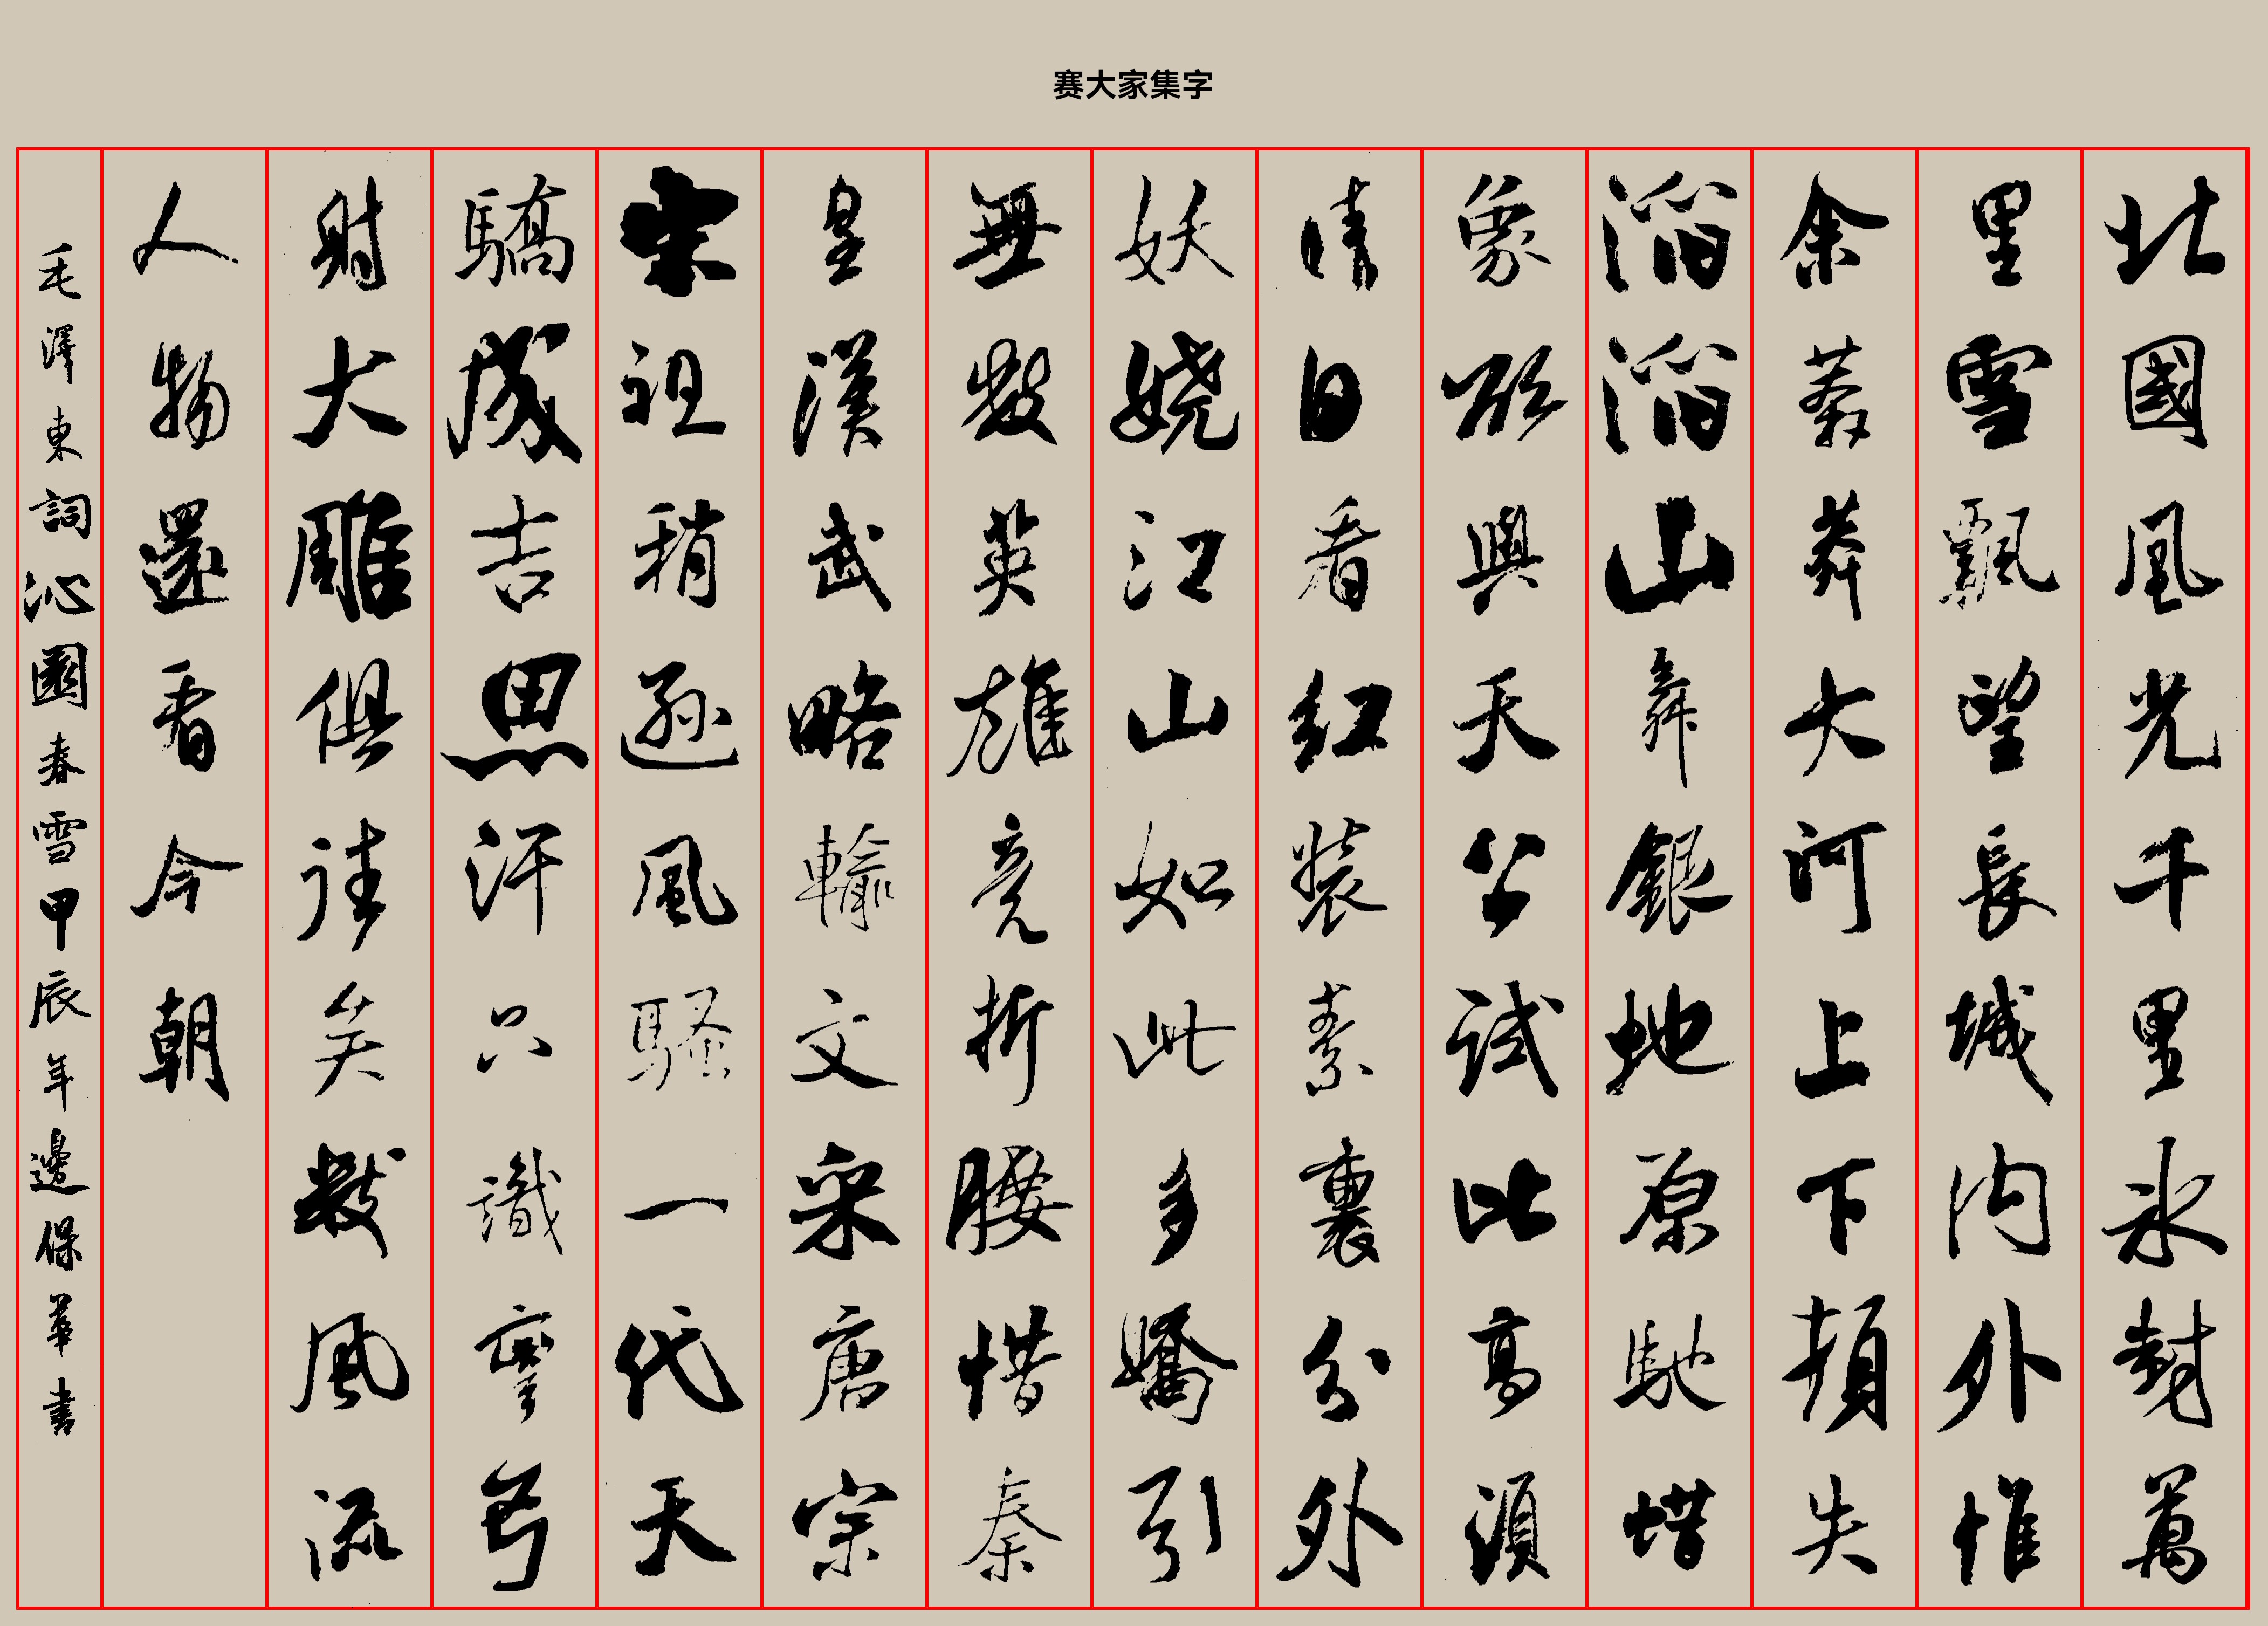 赛大家集字
北國風光千里冰封萬
里雪飄望長城內外惟
余莽莽大河上下頓失
滔滔山舞銀蛇原馳蜡
象欲與天公試比高須
晴日看紅裝素裹分外
妖嬈江山如此多嬌引
無數英雄竞折腰惜秦
皇漢武略輸文采唐宗
宋祖稍遜風騷一代天
驕成吉思汗只識彎弓
射大雕俱往矣數風流
人物還看今朝
毛澤東詞沁園春雪甲辰年邊保華書